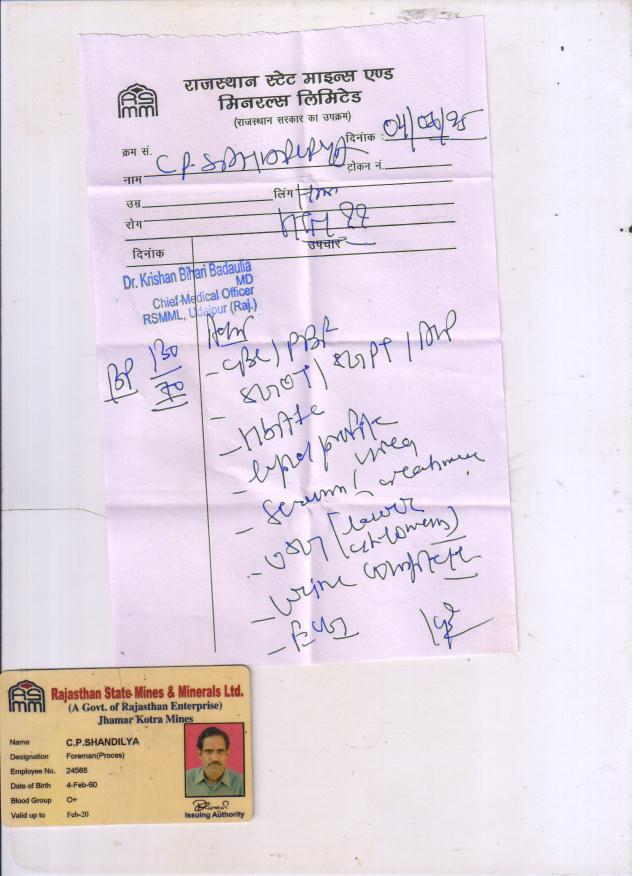 RSMM
राजस्थान स्टेट माइन्स एण्ड
मिनरल्स लिमिटेड
(राजस्थान सरकार का उपक्रम)
क्रम सं. दिनांक :
नाम C.P. SHANDILYA टोकन नं.
उम्र लिंग
रोग
दिनांक उपचार
Dr. Krishan Bihari Badaulia
MD
Chief Medical Officer
RSMML, Udaipur (Raj.)
BP 130/70
- CBC / PBF
- SGOT / SGPT / ALP
- HbA1c
- Lipid profile
- Serum urea creatinine
- USG (lower abdomen)
- Urine complete
- ECG
RSMM
Rajasthan State Mines & Minerals Ltd.
(A Govt. of Rajasthan Enterprise)
Jhamar Kotra Mines
Name C.P.SHANDILYA
Designation Foreman(Proces)
Employee No. 24568
Date of Birth 4-Feb-60
Blood Group O+
Valid up to Feb-20
Issuing Authority